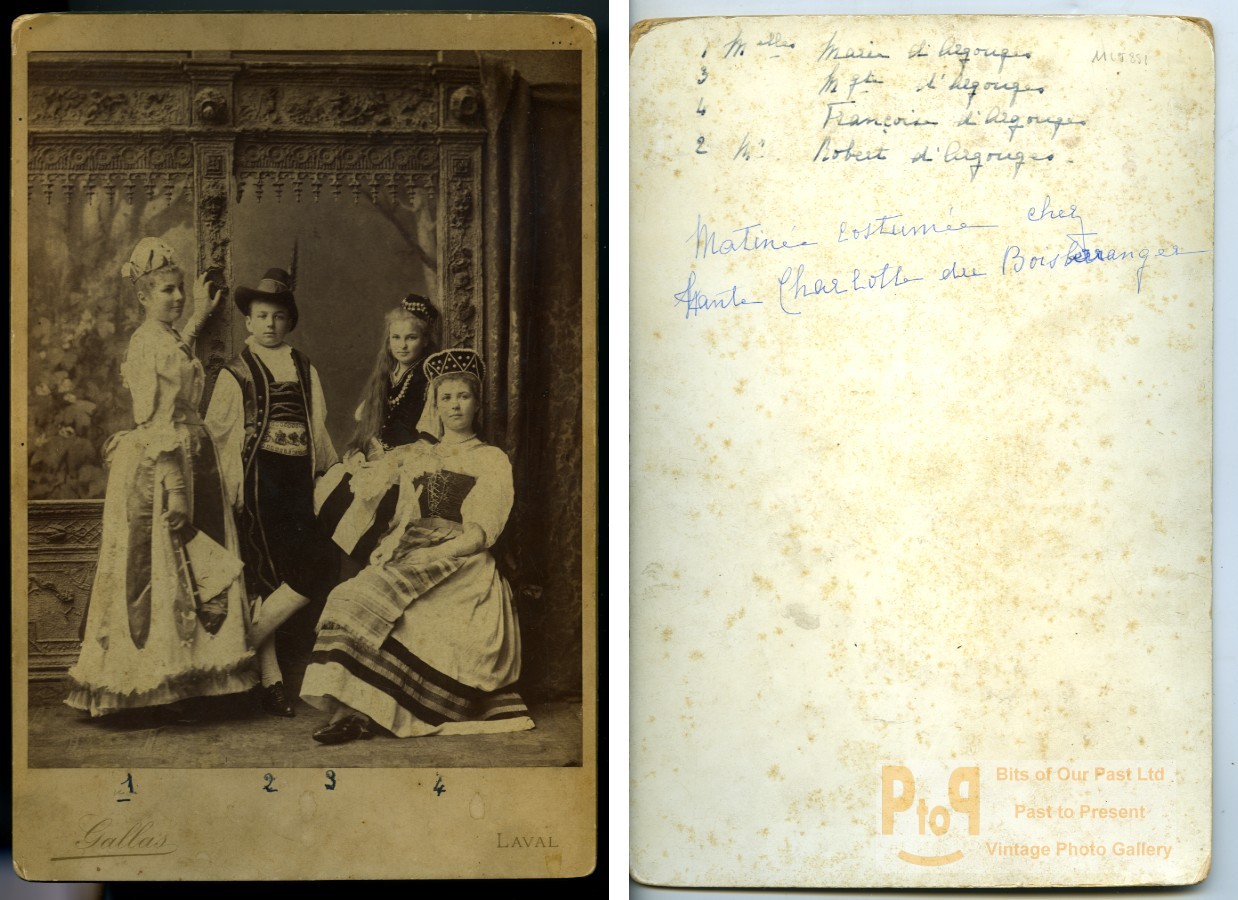 1 2 3 4
Gallas
LAVAL
1 Melles Marie d'Argouges
3 Mgte d'Argouges
4 Françoise d'Argouges
2 Mr Robert d'Argouges.
Matinée costumée chez
tante Charlotte du Boisberranger
PtoP
Bits of Our Past Ltd
Past to Present
Vintage Photo Gallery